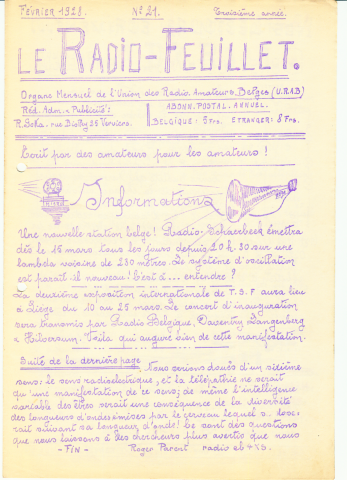 FÉVRIER 1928. No 21. Troisième année.
LE RADIO-FEUILLET.
Organe Mensuel de l'Union des Radio-Amateurs Belges (U.R.A.B)
Réd. Adm. & Publicité: ABONN. POSTAL. ANNUEL.
R. Scha. rue Verviers. BELGIQUE: 5 Frs. ETRANGER: 8 Frs.
Ecrit par des amateurs pour les amateurs!
Informations
Une nouvelle station belge! Radio-Schaerbeek émettra
dès le 15 mars tous les jours depuis 20h.30 sur une
lambda voisine de 230 mètres. Le système d'oscillation
est paraît-il nouveau! C'est à... entendre?
La deuxième exposition internationale de T.S.F aura lieu
à Liège du 10 au 25 mars. Le concert d'inauguration
sera transmis par Radio Belgique, Daventry Langenberg
& Hilversum. Voilà qui augure bien de cette manifestation.
Suite de la dernière page Nous serions doués d'un sixième
sens: le sens radioélectrique, et la télépathie ne serait
qu'une manifestation de ce sens; de même l'intelligence
variable des êtres serait une conséquence de la diversité
des longueurs d'ondes émises par le cerveau lequel
suivant sa longueur d'onde! Ce sont des questions
que nous laissons à des chercheurs plus avertis que nous
- FIN - Roger Parent radio eb4